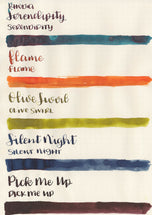 RHODIA
Serendipity
SERENDIPITY
Flame
FLAME
Olive Swirl
OLIVE SWIRL
Silent Night
SILENT NIGHT
Pick Me Up
PICK ME UP